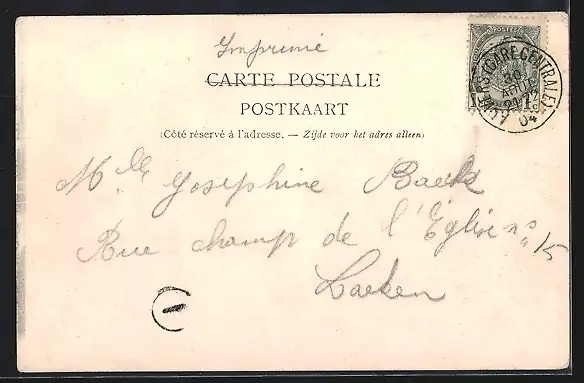 Imprimé
CARTE POSTALE
POSTKAART
(Côté réservé à l'adresse. — Zijde voor het adres alleen)
Mlle Josephine Baeks
Rue champ de l'Église n° 15
Laeken
POSTES
ANVERS (GARE CENTRALE)
30
AOUT
04
1